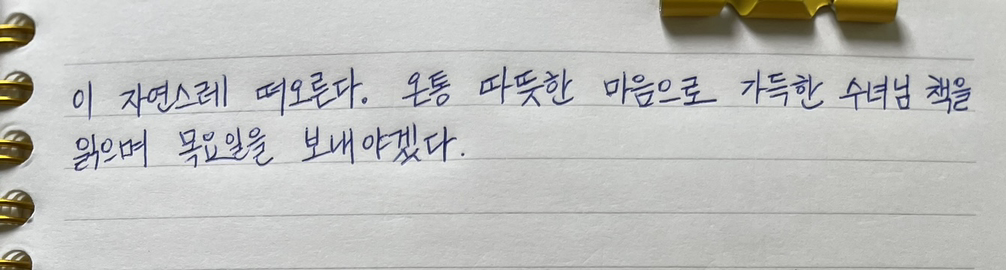 이 자연스레 떠오른다. 온통 따뜻한 마음으로 가득한 수녀님 책을
읽으며 목요일을 보내야겠다.